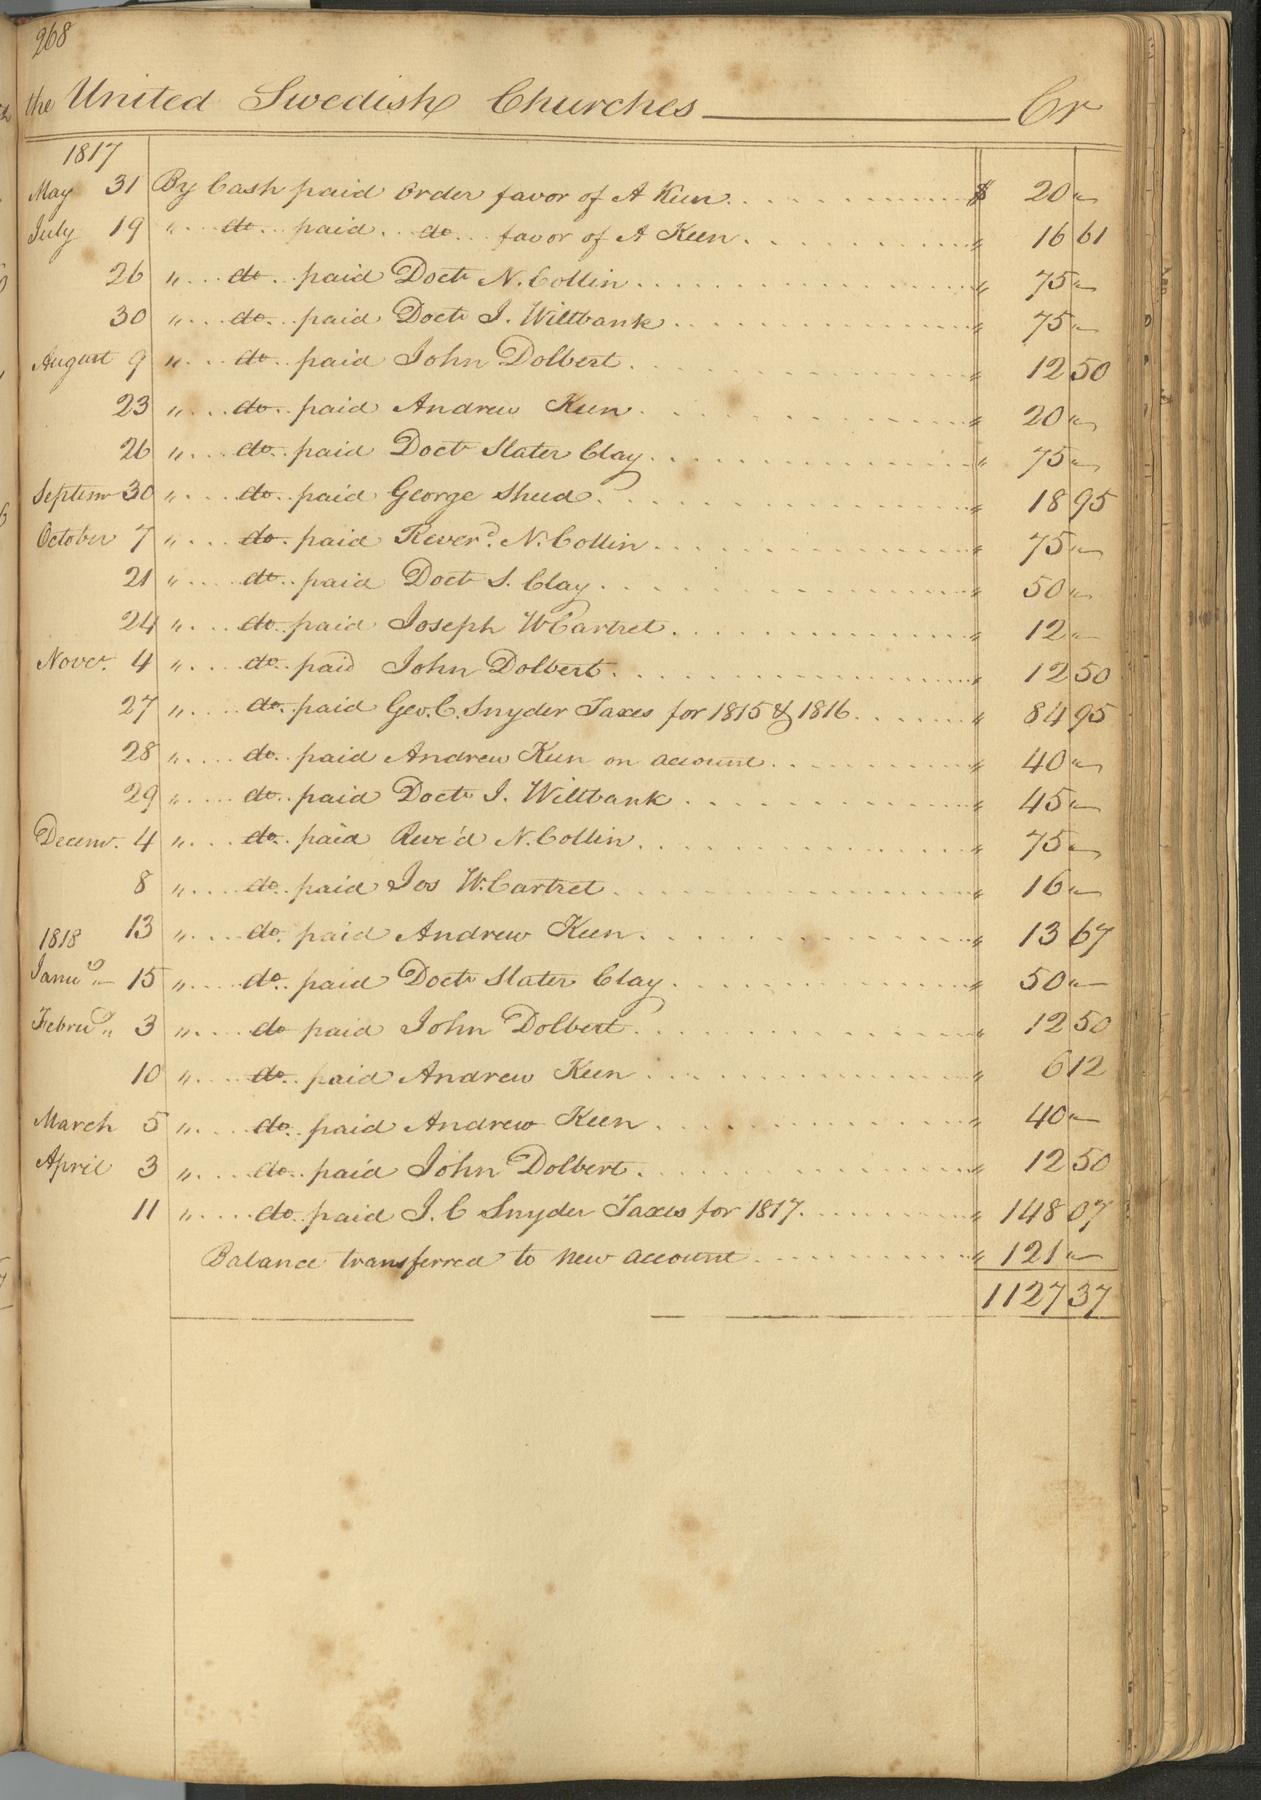 268
the United Swedish Churches Cr
1817
May 31 By Cash paid Order favor of A Keen $ 20 "
July 19 " do paid do favor of A Keen " 16 61
26 " do paid Doctr N. Collin " 75 "
30 " do paid Doctr J. Wiltbank " 75 "
August 9 " do paid John Dolbert " 12 50
23 " do paid Andrew Keen " 20 "
26 " do paid Doctr Slater Clay " 75 "
Septemr 30 " do paid George Sheed " 18 95
October 7 " do paid Reverd. N. Collin " 75 "
21 " do paid Doctr S. Clay " 50 "
24 " do paid Joseph W Cartret " 12 "
Nover. 4 " do paid John Dolbert " 12 50
27 " do paid Geo. C. Snyder Taxes for 1815 & 1816 " 84 95
28 " do paid Andrew Keen on account " 40 "
29 " do paid Doctr J. Wiltbank " 45 "
Decemr. 4 " do paid Reve'd N. Collin " 75 "
8 " do paid Jos W. Cartret " 16 "
13 " do paid Andrew Keen " 13 67
1818
Janu'y 15 " do paid Doctr Slater Clay " 50 "
Febru'y 3 " do paid John Dolbert " 12 50
10 " do paid Andrew Keen " 6 12
March 5 " do paid Andrew Keen " 40 "
April 3 " do paid John Dolbert " 12 50
11 " do paid J. C Snyder Taxes for 1817 " 148 07
Balance transferred to New account " 121 "
1127 37